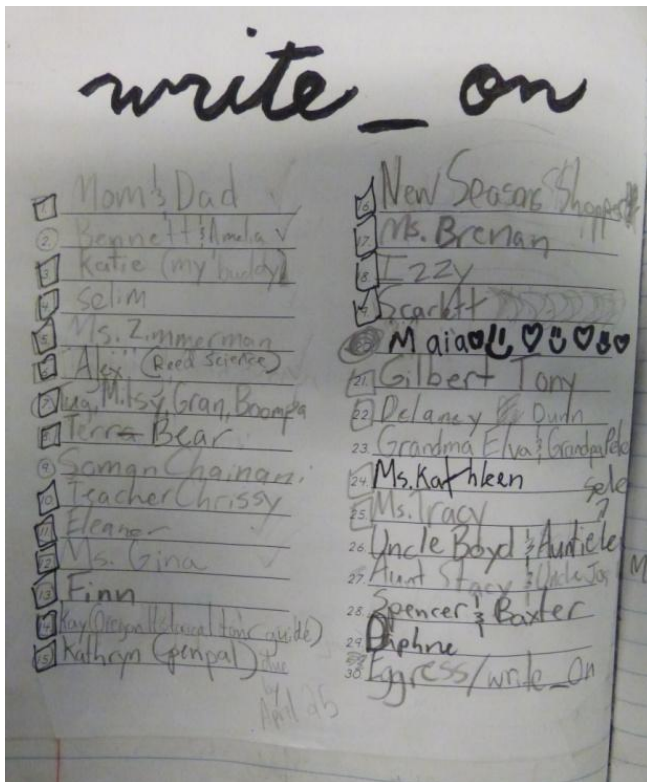 write_on
1. Mom & Dad ✓
2. Bennett & Amelia ✓
3. Katie (my buddy)
4. Selim
5. Ms. Zimmerman
6. Alex (Reed Science)
7. Mitsy, Gran, Boompa
8. Terra Bear
9. Soman Chainani
10. Teacher Chrissy
11. Eleanor ✓
12. Ms. Gina ✓
13. Finn
14. Kay (Oregon Historical tour guide)
15. Kathryn (penpal) due
by
April 25
16. New Seasons Shoppers
17. Ms. Brenan
18. Izzy
19. Scarlett
20. Maia
21. Gilbert Tony
22. Delaney Dunn
23. Grandma Elva & Grandpa Pete
24. Ms. Kathleen
25. Ms. Tracy
26. Uncle Boyd & Auntie
27. Aunt Stacy & Uncle
28. Spencer & Baxter
29. Daphne
30. Eggress/write_On